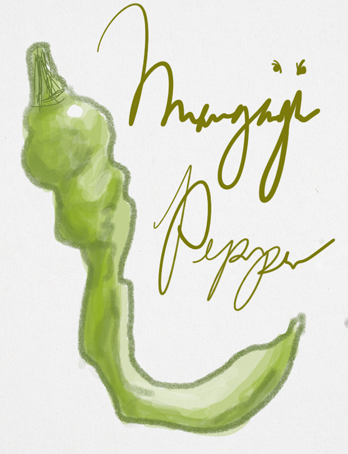 Manganji
Pepper